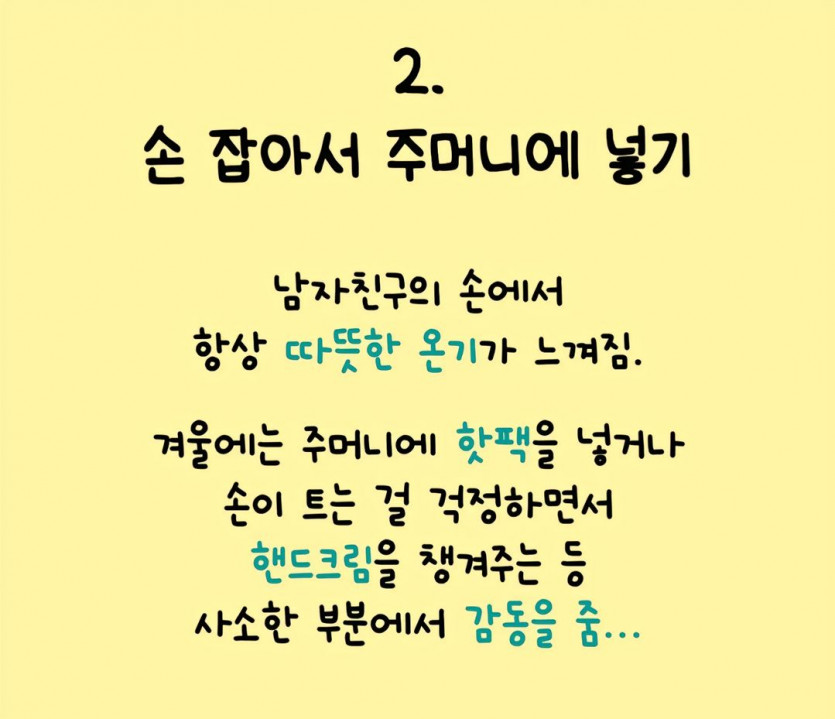 2.
손 잡아서 주머니에 넣기
남자친구의 손에서
항상 따뜻한 온기가 느껴짐.
겨울에는 주머니에 핫팩을 넣거나
손이 트는 걸 걱정하면서
핸드크림을 챙겨주는 등
사소한 부분에서 감동을 줌...